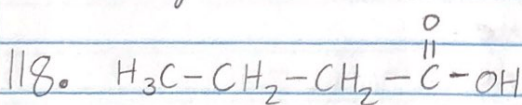 O
||
118. H₃C-CH₂-CH₂-C-OH